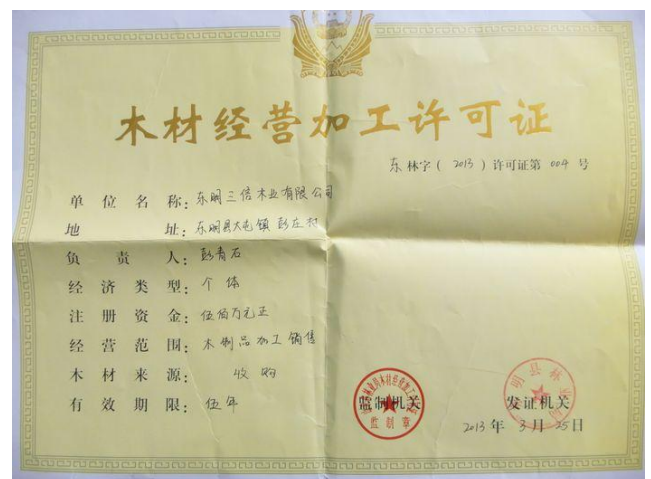 木材经营加工许可证
东林字(2013)许可证第004号
单位名称:东明三信木业有限公司
地址:东明县大屯镇彭庄村
负责人:彭青石
经济类型:个体
注册资金:伍佰万元正
经营范围:木制品加工销售
木材来源:收购
有效期限:伍年
监制机关 发证机关
监制章
2013年3月25日